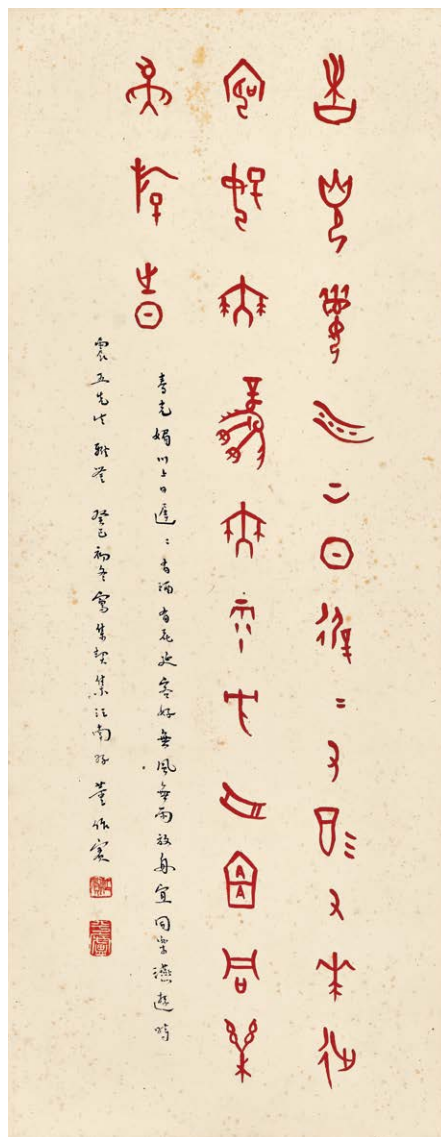 春光媚川上日遲〻有酒有花延
客好無風無雨放舟宜同樂
燕遊時
春光媚川上日遲〻有酒有花延客好無風無雨放舟宜同樂燕遊時
震五先生雅鑒 癸巳初冬寫集契集江南好 董作賓